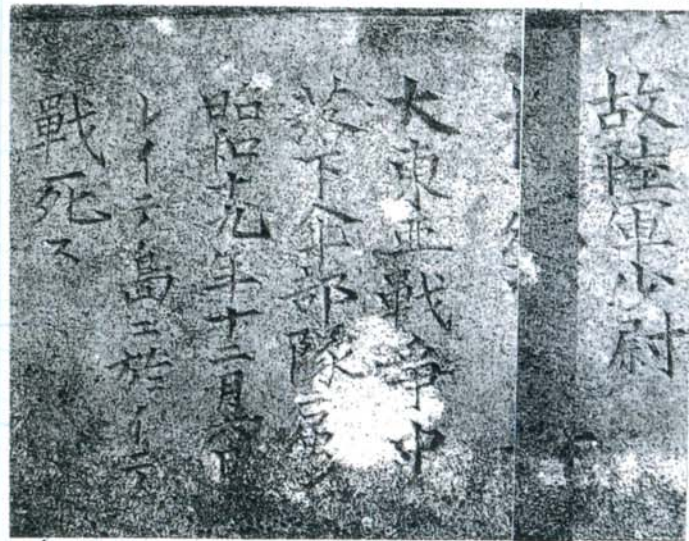 故陸軍少尉
大東亜戦争中
落下傘部隊
昭和十九年十二月六日
レイテ島ニ於イテ
戰死ス